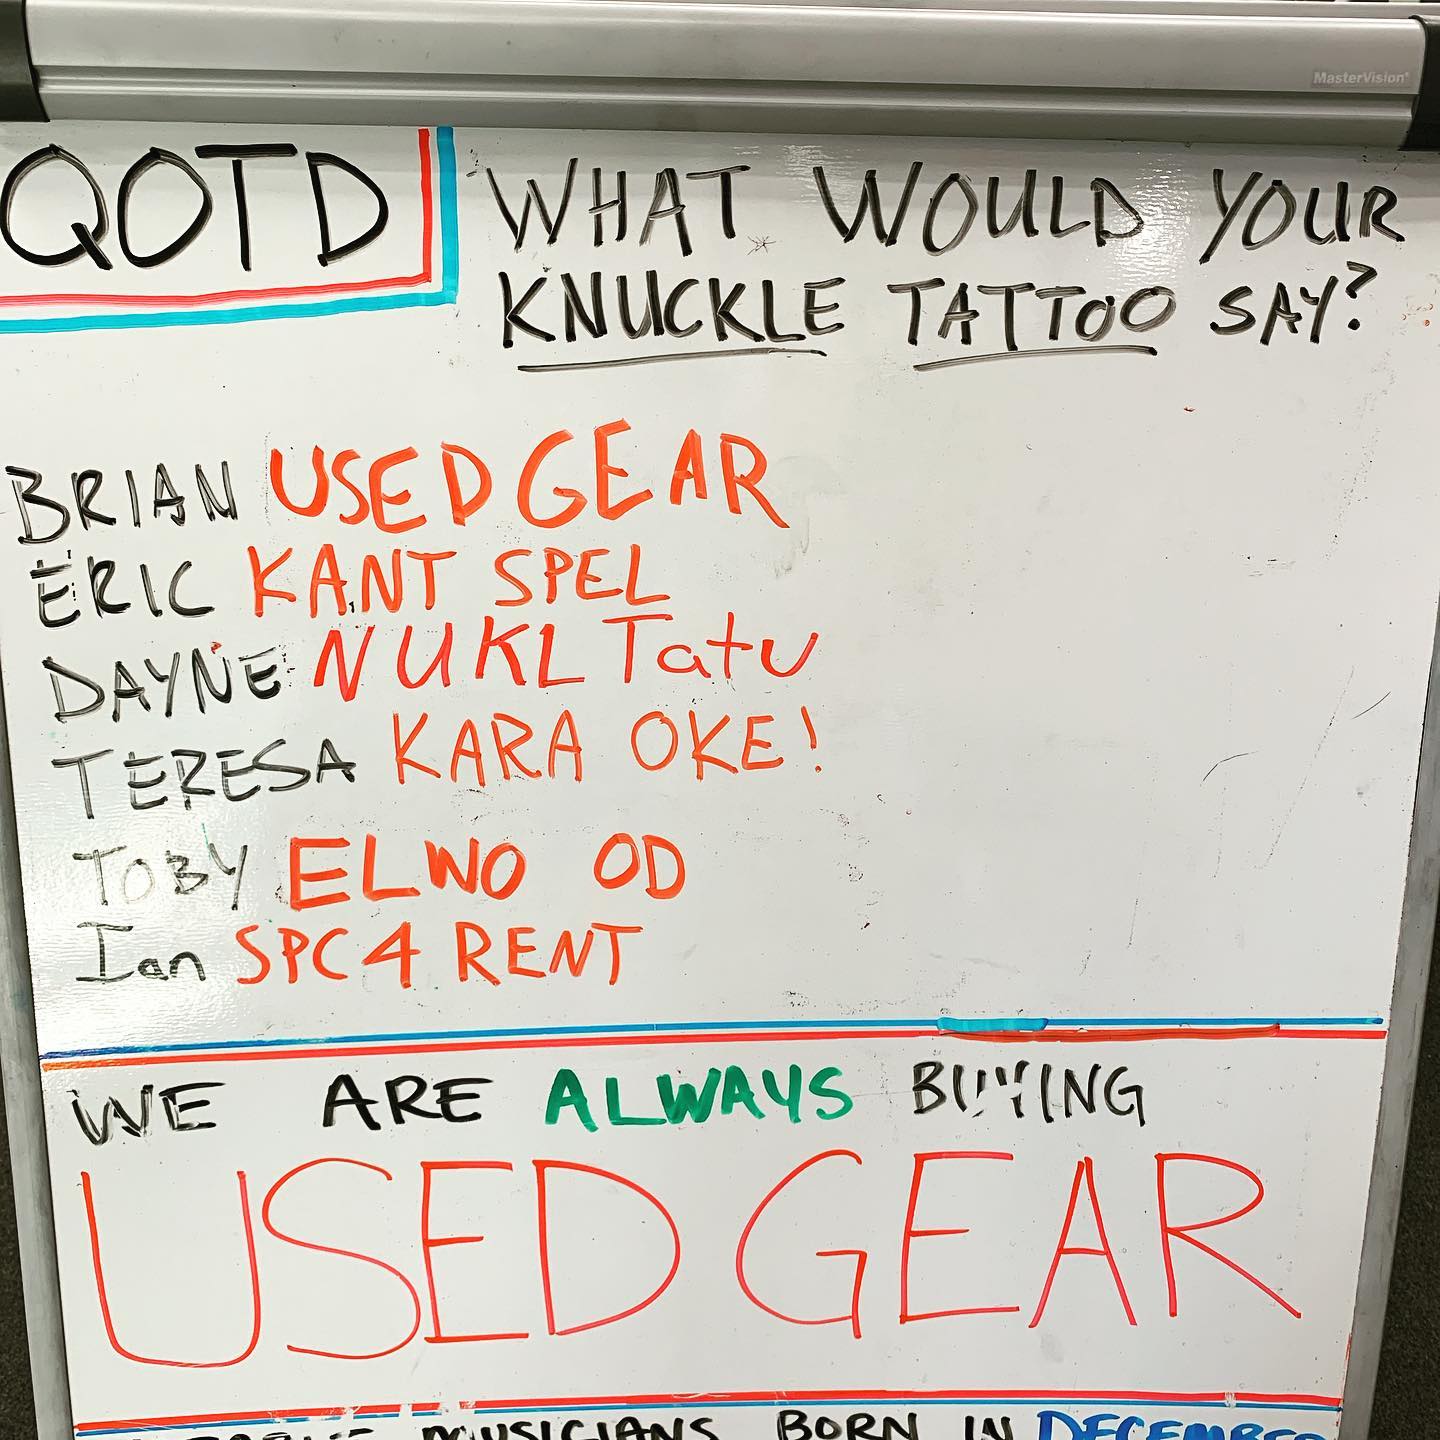 MasterVision®
QOTD WHAT WOULD YOUR
KNUCKLE TATTOO SAY?
BRIAN USED GEAR
ERIC KANT SPEL
DAYNE NUKL Tatu
TERESA KARA OKE!
TOBY ELWO OD
Ian SPC4 RENT
WE ARE ALWAYS BUYING
USED GEAR
MUSICIANS BORN IN DECEMBER